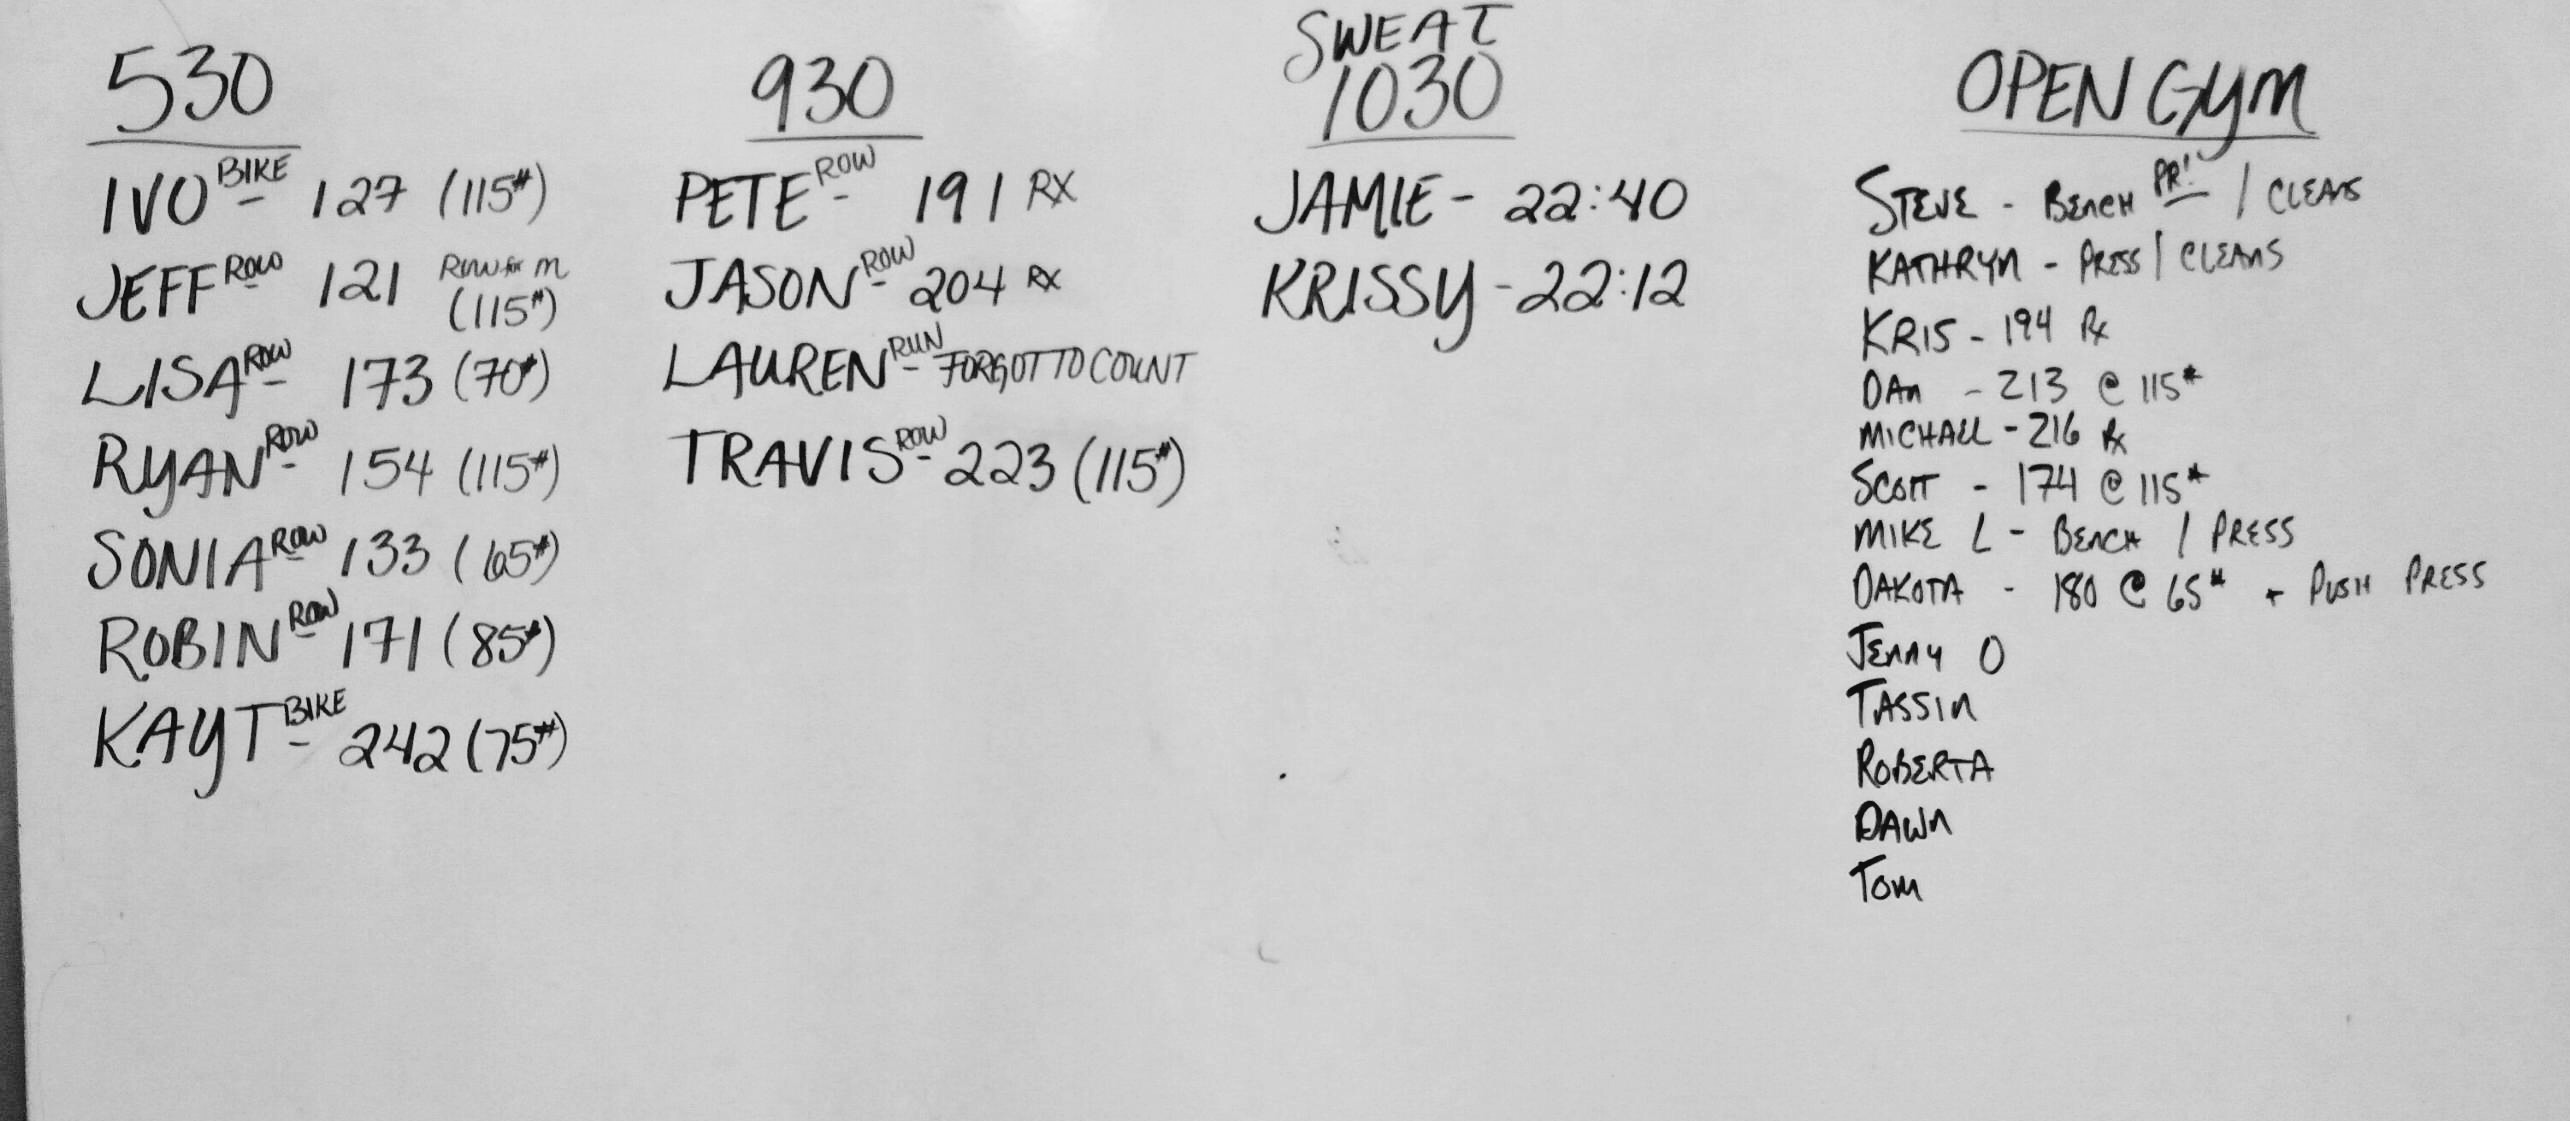 530
IVO BIKE - 127 (115#)
JEFF ROW - 121 ROW for m
(115#)
LISA ROW - 173 (70#)
RYAN ROW - 154 (115#)
SONIA ROW - 133 (65#)
ROBIN ROW - 171 (85#)
KAYT BIKE - 242 (75#)
930
PETE ROW - 191 RX
JASON ROW - 204 RX
LAUREN RUN - FORGOT TO COUNT
TRAVIS ROW - 223 (115#)
SWEAT
1030
JAMIE - 22:40
KRISSY - 22:12
OPEN GYM
STEVE - BENCH PR! / CLEANS
KATHRYN - PRESS / CLEANS
KRIS - 194 Rx
DAN - 213 @ 115#
MICHAEL - 216 Rx
SCOTT - 174 @ 115#
MIKE L - BENCH / PRESS
DAKOTA - 180 @ 65# + PUSH PRESS
JENNY O
TASSIN
ROBERTA
DAWN
TOM